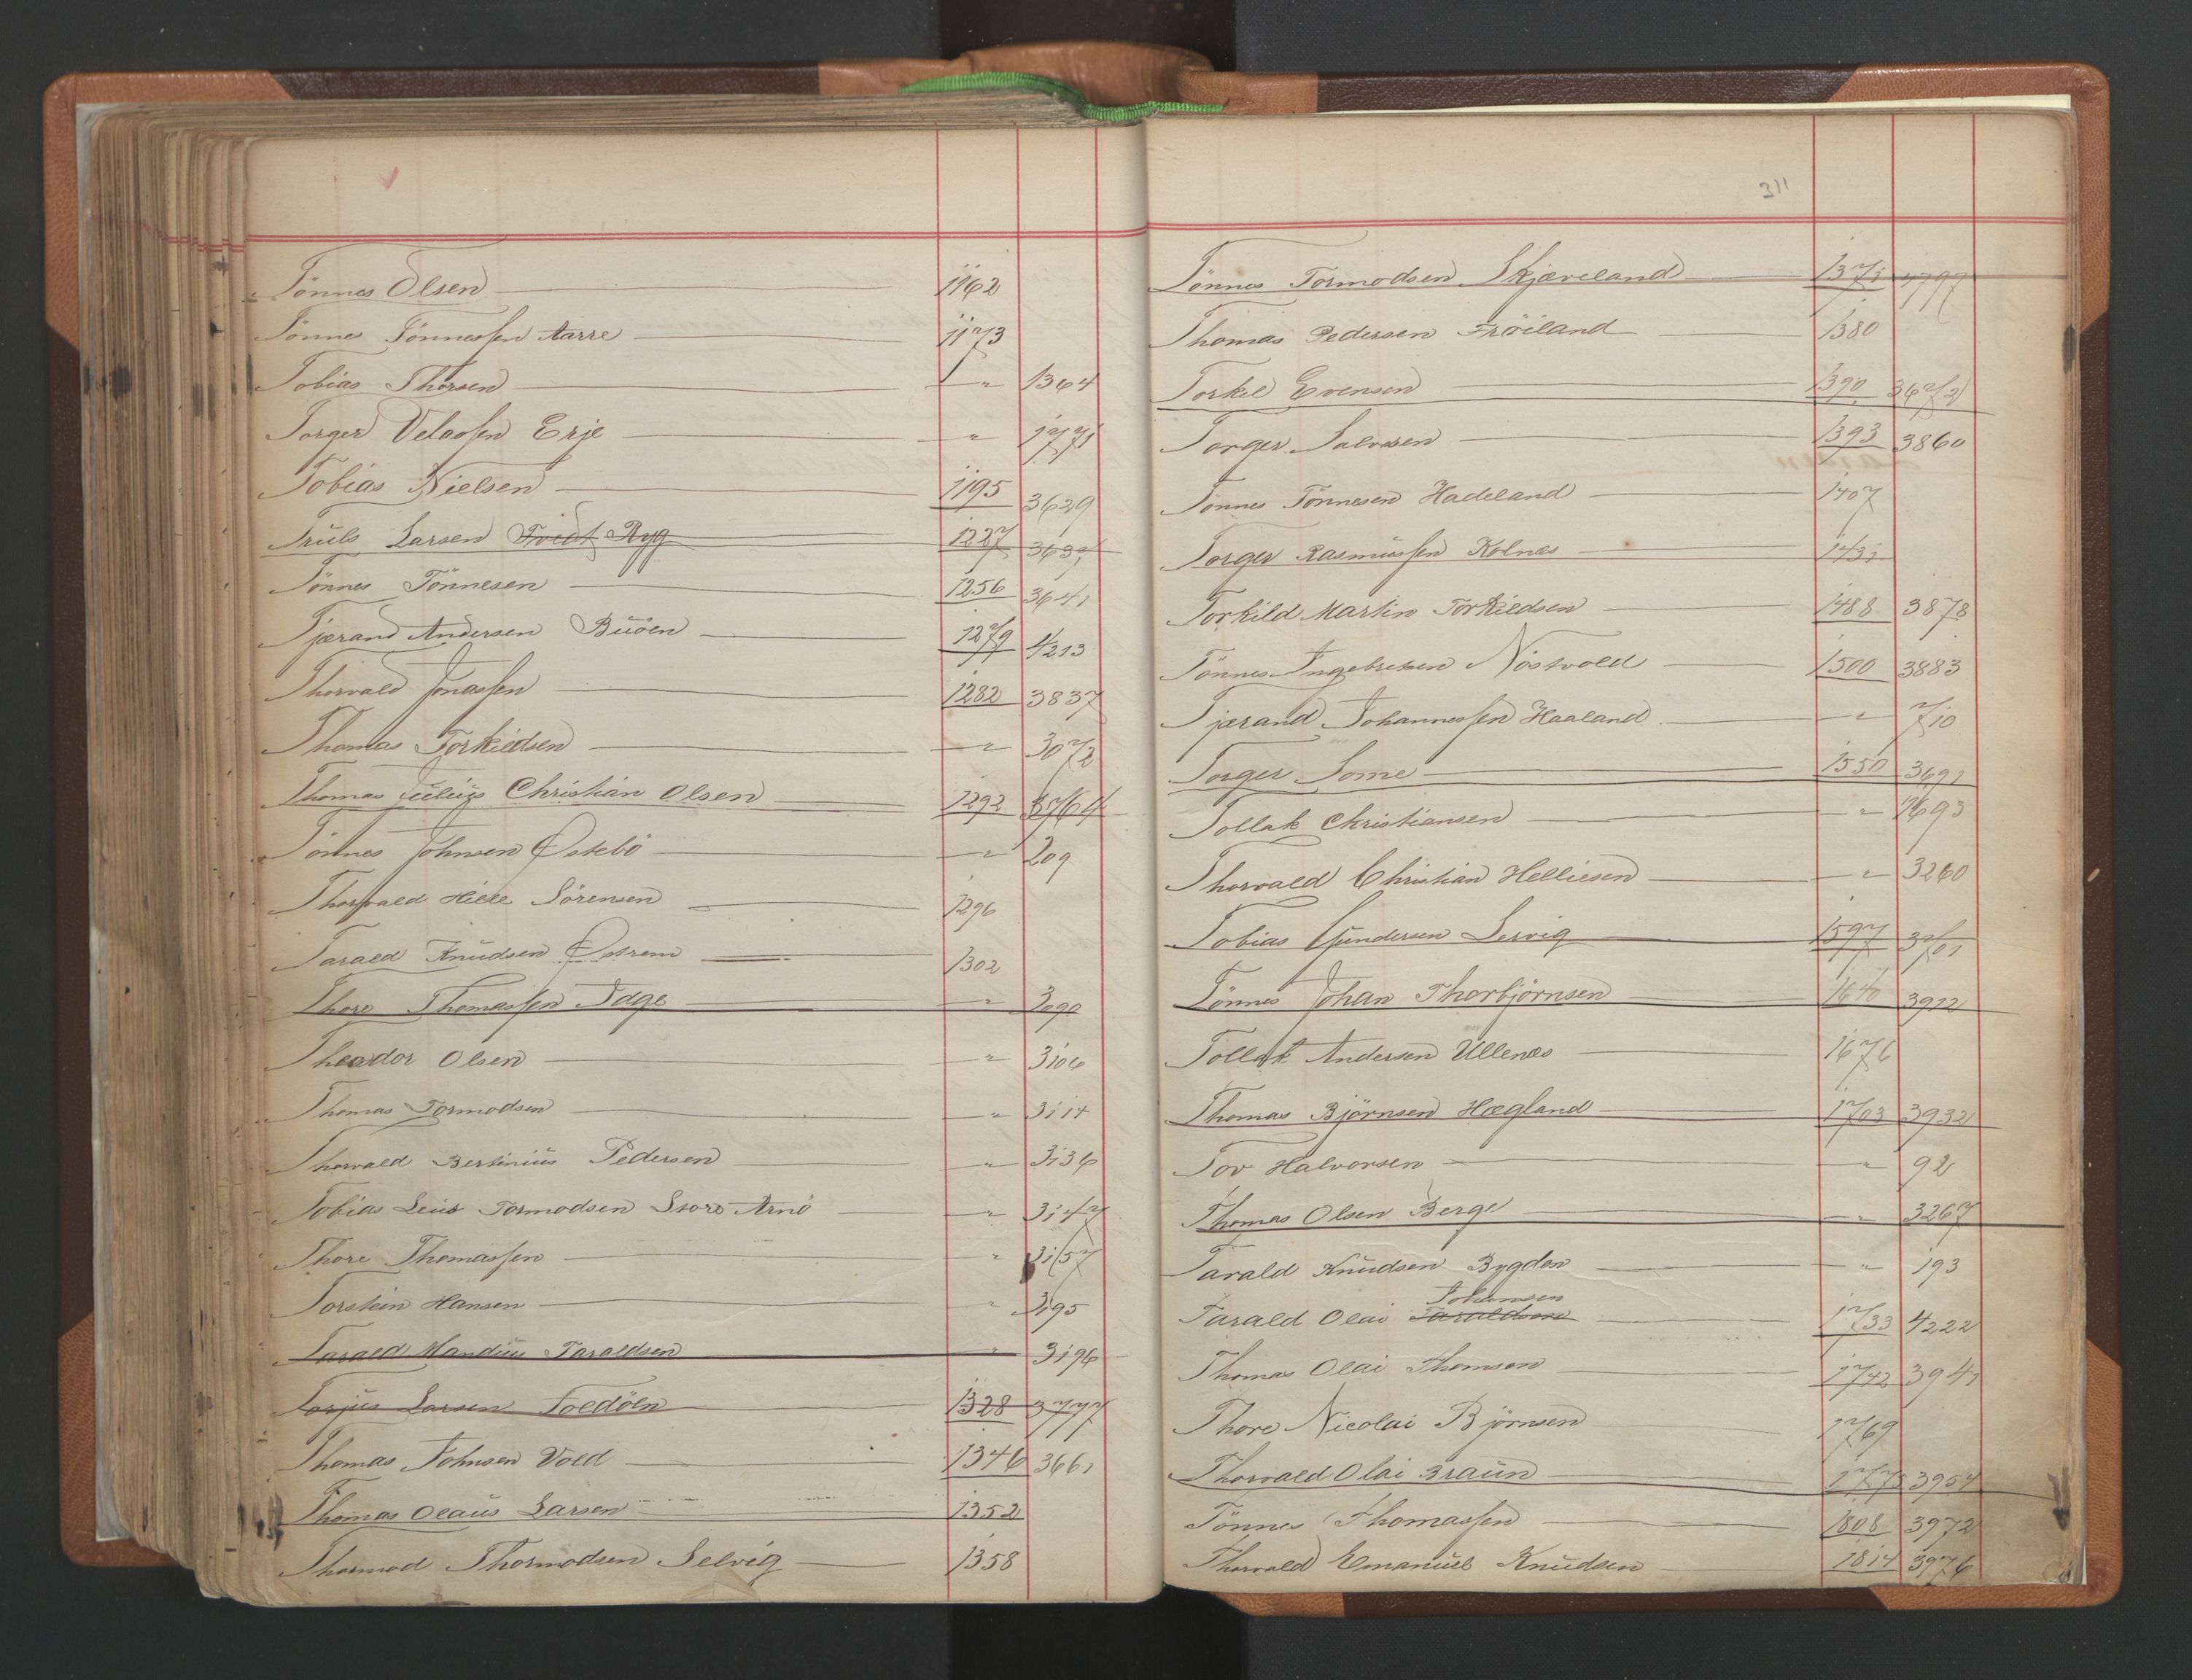 Tönnes Olsen 1162
Tönnes Tönnessen Aarre 1173
Tobias Thorsen " 1364
Torger Velassen Erje " 1771
Tobias Nielsen 1195 3629
Truls Larsen Tvedt Ryg 1227
Tönnes Tönnesen 1256 3641
Tjærand Andersen Buöen 1279 4213
Thorvald Jonassen 1282 3837
Thomas Torkildsen " 3072
Thomas Julius Christian Olsen 1292 3764
Tönnes Johnsen Östebö " 209
Thorvald Hille Sörensen 1296
Tarald Knudsen Östrem 1302
Thore Thomassen Idge " 3090
Theodor Olsen " 3106
Thomas Tormodsen " 3114
Thorvald Bertinius Pedersen " 3136
Tobias Leus Tormodsen Store Arnö " 3147
Thore Thomassen " 3157
Torstein Hansen " 3195
Tarald Mandius Taraldsen " 3196
Torjus Larsen Foldöln 1328 3777
Thomas Johnsen Vold 1346 3661
Thomas Olaus Larsen 1352
Thormod Thormodsen Selvig 1358
311
Tönnes Tormodsen Skjæveland 1371 4797
Thomas Pedersen Fröiland 1380
Torkel Evensen 1390 3672
Torger Salvesen 1393 3860
Tönnes Tönnesen Hadeland 1407
Torger Rasmussen Kolnes 1431
Torkild Martin Torkildsen 1488 3878
Tönnes Ingebretsen Nöstvold 1500 3883
Tjærand Johannessen Haaland " 710
Torger Some 1550 3691
Tollak Christiansen " 1693
Thorvald Christian Helliesen " 3260
Tobias Gundersen Servig 1597 3701
Tönnes Johan Thorbjörnsen 1640 3912
Tollak Andersen Ullenes 1676
Thomas Björnsen Hægland 1703 3932
Tov Halvorsen " 92
Thomas Olsen Berge " 3267
Tarald Knudsen Bygden " 193
Johansen
Tarald Olai Taraldsen 1733 4222
Thomas Olai Thomsen 1742 3941
Thore Nicolai Björnsen 1769
Thorvald Olai Braun 1773 3954
Tönnes Thomassen 1808 3972
Thorvald Emanuel Knudsen 1814 3976